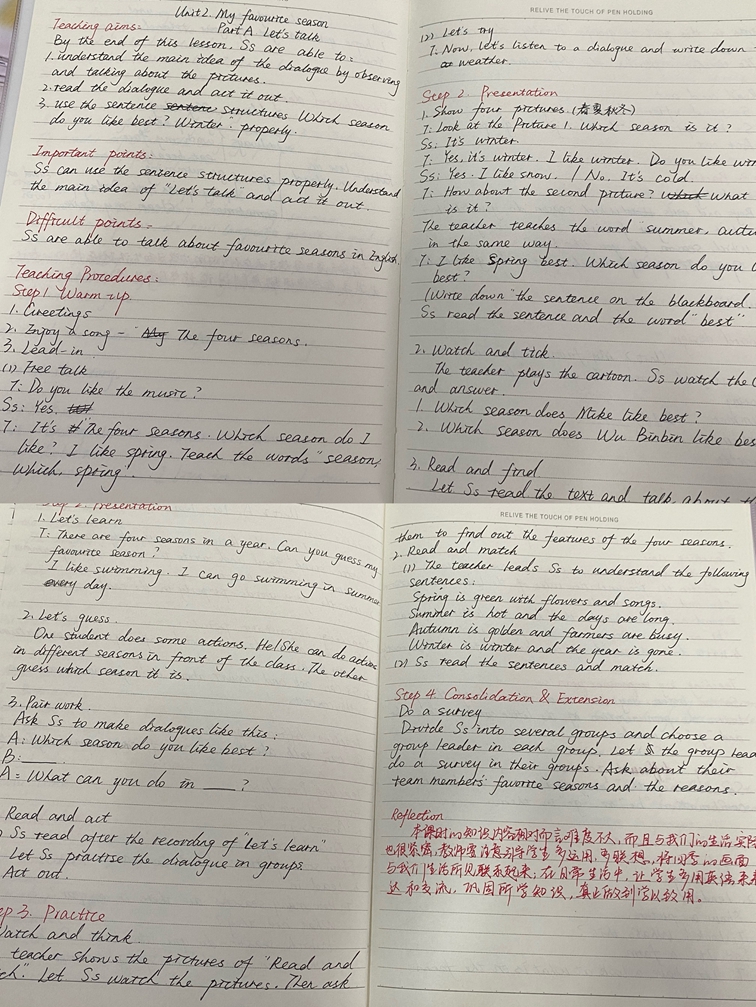 Unit2. My favourite season
Part A Let's talk
Teaching aims:
By the end of this lesson, Ss are able to:
1. understand the main idea of the dialogue by observing
and talking about the pictures.
2. read the dialogue and act it out.
3. use the sentence structures Which season
do you like best? Winter. properly.
Important points:
Ss can use the sentence structures properly. Understand
the main idea of "Let's talk" and act it out
Difficult points:
Ss are able to talk about favourite seasons in English.
Teaching Procedures:
Step 1 Warm-up.
1. Greetings
2. Enjoy a song - The four seasons.
3. Lead-in
(1) Free talk
T: Do you like the music?
Ss: Yes.
T: It's "The four seasons. Which season do I
like? I like spring. Teach the words "season,
which, spring".
RELIVE THE TOUCH OF PEN HOLDING
(2) Let's try
T: Now, let's listen to a dialogue and write down
weather.
Step 2. Presentation
1. Show four pictures. (春夏秋冬)
T: Look at the Picture 1. Which season is it?
Ss: It's winter.
T: Yes, it's winter. I like winter. Do you like win
Ss: Yes. I like snow. / No. It's cold.
T: How about the second picture? What
is it?
The teacher teaches the word summer, autu
in the same way.
T: I like spring best. Which season do you
best?
(Write down the sentence on the blackboard.
Ss read the sentence and the word "best"
2. Watch and tick.
The teacher plays the cartoon. Ss watch the
and answer.
1. Which season does Mike like best?
2. Which season does Wu Binbin like bes
3. Read and find
Let Ss read the text and talk about th
Step 2. Presentation
1. Let's learn
T: There are four seasons in a year. Can you guess my
favourite season?
I like swimming. I can go swimming in summer
every day.
2. Let's guess.
One student does some actions. He/She can do actions
in different seasons in front of the class. The other
guess which season it is.
3. Pair work.
Ask Ss to make dialogues like this:
A: Which season do you like best?
B: ____.
A: What can you do in ____?
Read and act
Ss read after the recording of "Let's learn"
Let Ss practise the dialogue in groups.
Act out.
ep 3. Practice
Watch and think.
teacher shows the pictures of "Read and
ch". Let Ss watch the pictures. Then ask
RELIVE THE TOUCH OF PEN HOLDING
them to find out the features of the four seasons.
2. Read and match
(1) The teacher leads Ss to understand the following
sentences:
Spring is green with flowers and songs.
Summer is hot and the days are long.
Autumn is golden and farmers are busy.
Winter is winter and the year is gone.
(2) Ss read the sentences and match.
Step 4. Consolidation & Extension
Do a survey
Divide Ss into several groups and choose a
group leader in each group. Let the group lead
do a survey in their groups. Ask about their
team members' favorite seasons and the reasons.
Reflection
本课时的知识内容相对而言难度不大，而且与我们的生活实际
也很紧密，教师要注意引导学生多运用，多联想，将四季的画面
与我们生活所见联系起来，在日常生活中，让学生多用英语来表
达和交流，巩固所学知识，真正做到学以致用。